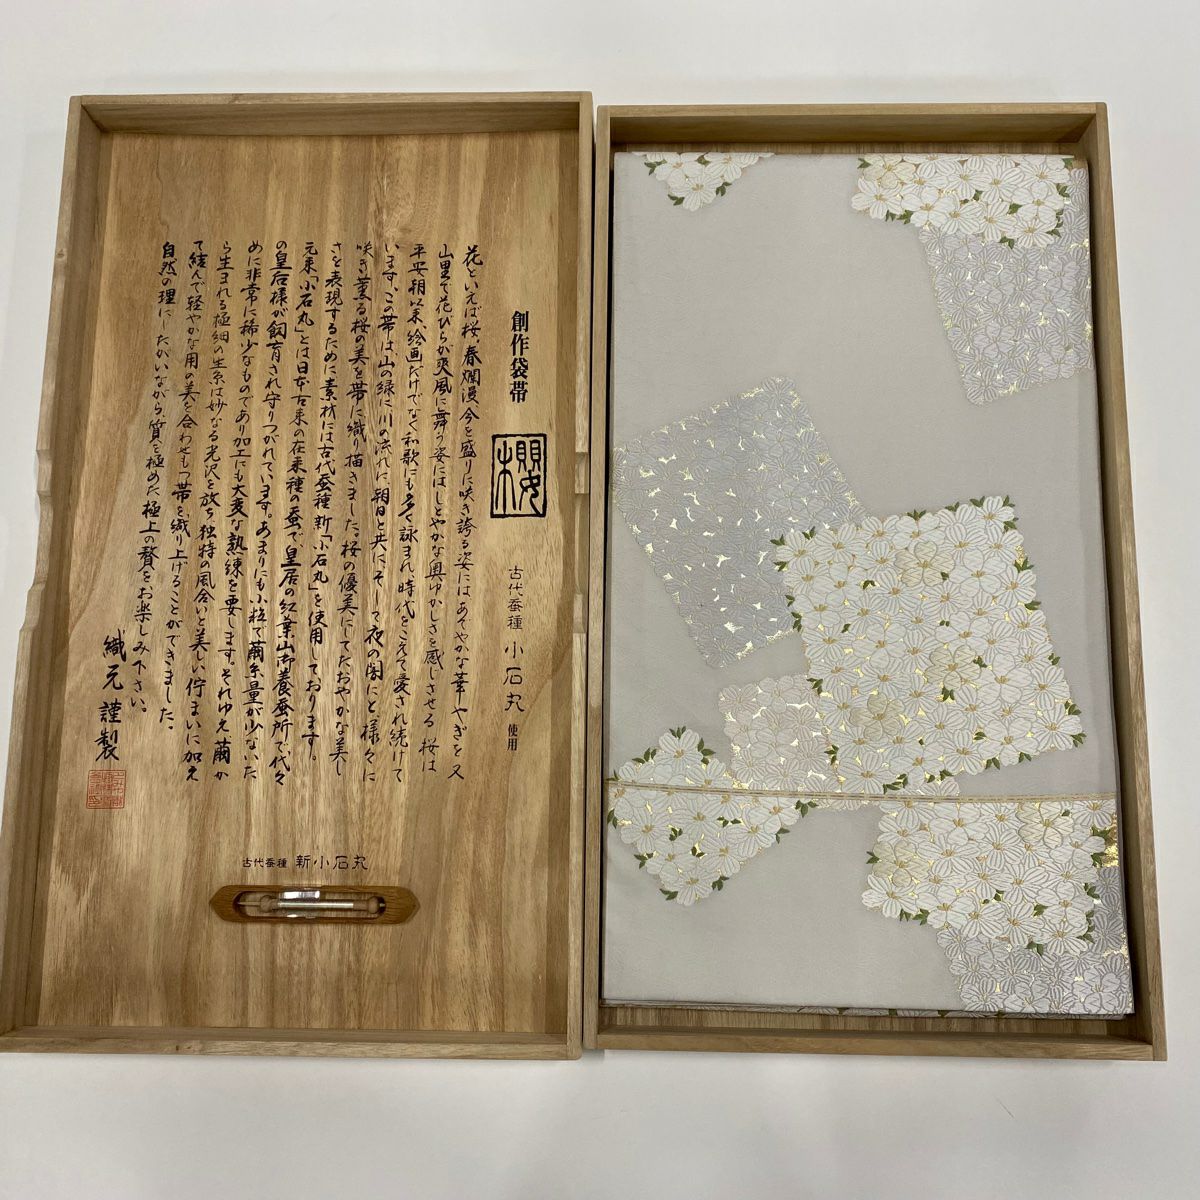 創作袋帯
櫻
古代蚕種 小石丸 使用
花といえば桜。春爛漫今を盛りに咲き誇る姿にはあでやかな華やぎを又
山里で花びらが爽風に舞う姿にはしとやかな奥ゆかしさを感じさせる桜は
平安朝以来、絵画だけでなく和歌にも多く詠まれ時代をこえて愛され続けて
います。この帯は、山の緑に川の流れに、朝日と共にそして夜の闇にと様々に
咲き薫る桜の美を帯に織り描きました。桜の優美にしてたおやかな美し
さを表現するために素材には古代蚕種新「小石丸」を使用しております。
元来「小石丸」とは日本古来の在来種の蚕で皇居の紅葉山御養蚕所で代々
の皇后様が飼育され守りつがれています。あまりにも小粒で繭糸量が少ないた
めに非常に稀少なものであり加工にも大変な熟練を要します。それゆえ繭か
ら生まれる極細の生糸は妙なる光沢を放ち独特の風合いと美しい佇まいに加え
て結んで軽やかな用の美を合わせもつ帯を織り上げることができました。
自然の理にしたがいながら、質を極めた極上の贅をお楽しみ下さい。
織元謹製
古代蚕種 新小石丸